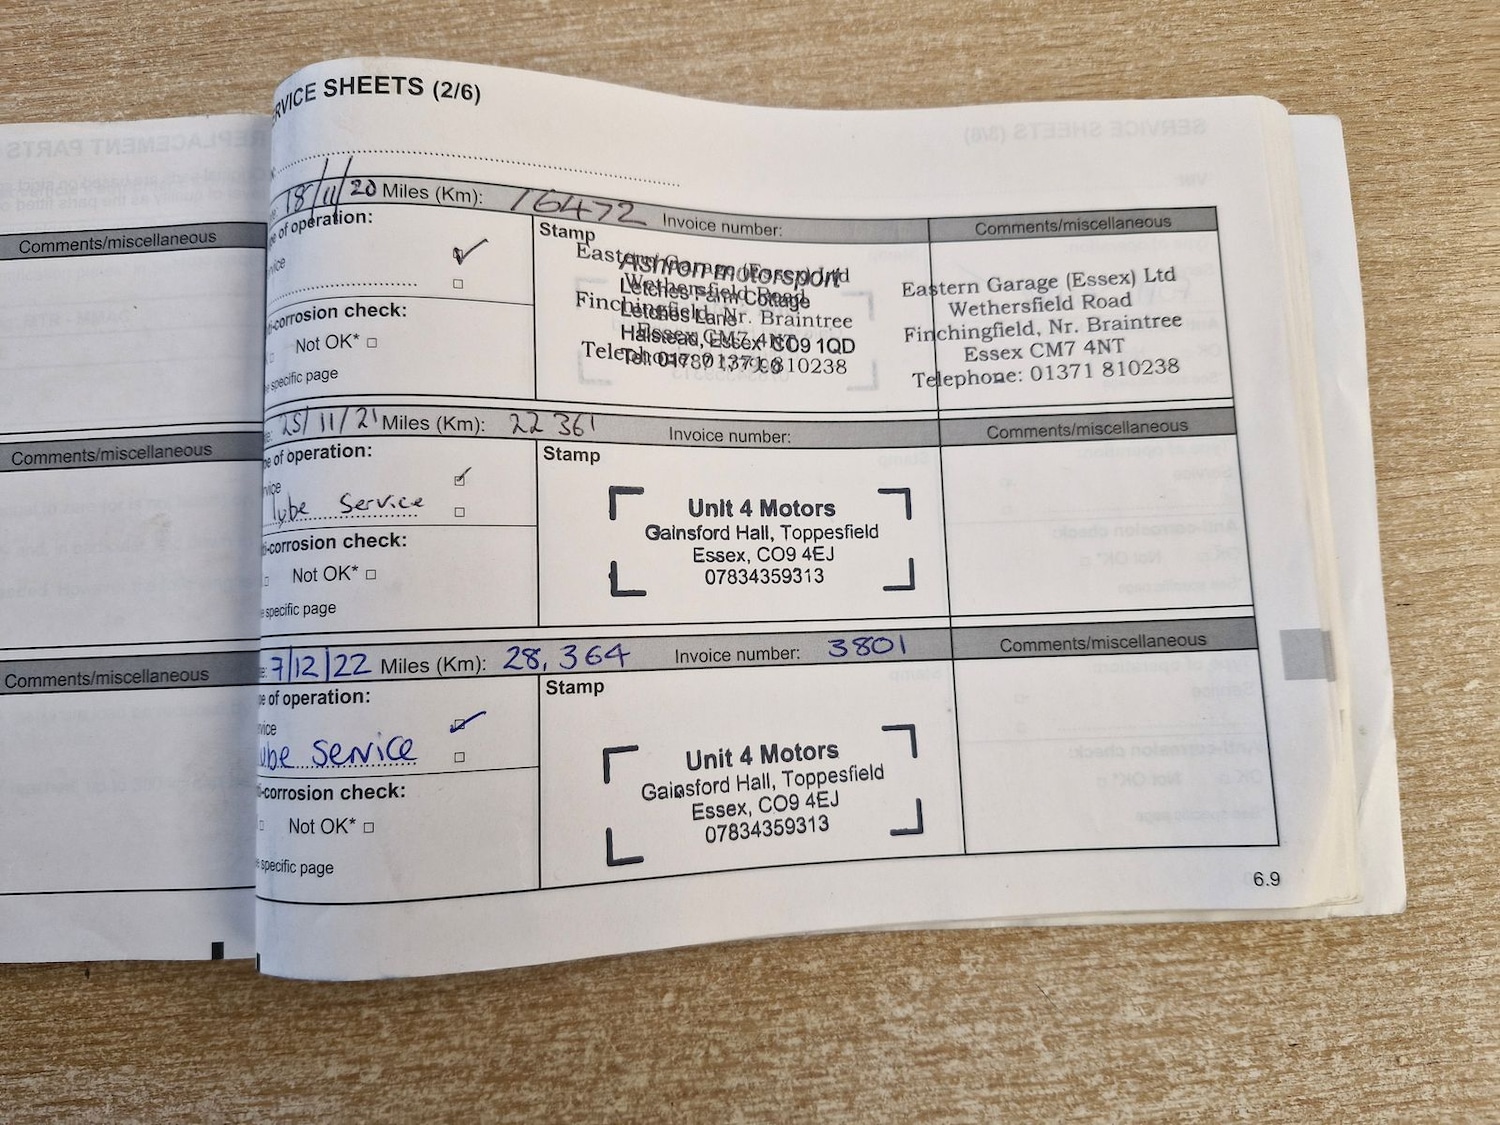 RVICE SHEETS (2/6)
18/11/20 Miles (Km): 16472 Invoice number: Comments/miscellaneous
e of operation:
vice
Stamp
Eastern Garage (Essex) Ltd
Wethersfield Road
Finchingfield, Nr. Braintree
Essex CM7 4NT
Telephone: 01371 810238
Ashron motorsport
Letches Farm Cottage
Letches Lane
Halstead, Essex CO9 1QD
Eastern Garage (Essex) Ltd
Wethersfield Road
Finchingfield, Nr. Braintree
Essex CM7 4NT
Telephone: 01371 810238
i-corrosion check:
Not OK*
e specific page
25/11/21 Miles (Km): 22 361 Invoice number: Comments/miscellaneous
e of operation:
vice
lube Service
Stamp
Unit 4 Motors
Gainsford Hall, Toppesfield
Essex, CO9 4EJ
07834359313
i-corrosion check:
Not OK*
specific page
7/12/22 Miles (Km): 28,364 Invoice number: 3801 Comments/miscellaneous
e of operation:
vice
ube Service
Stamp
Unit 4 Motors
Gainsford Hall, Toppesfield
Essex, CO9 4EJ
07834359313
i-corrosion check:
Not OK*
specific page
6.9
Comments/miscellaneous
Comments/miscellaneous
Comments/miscellaneous